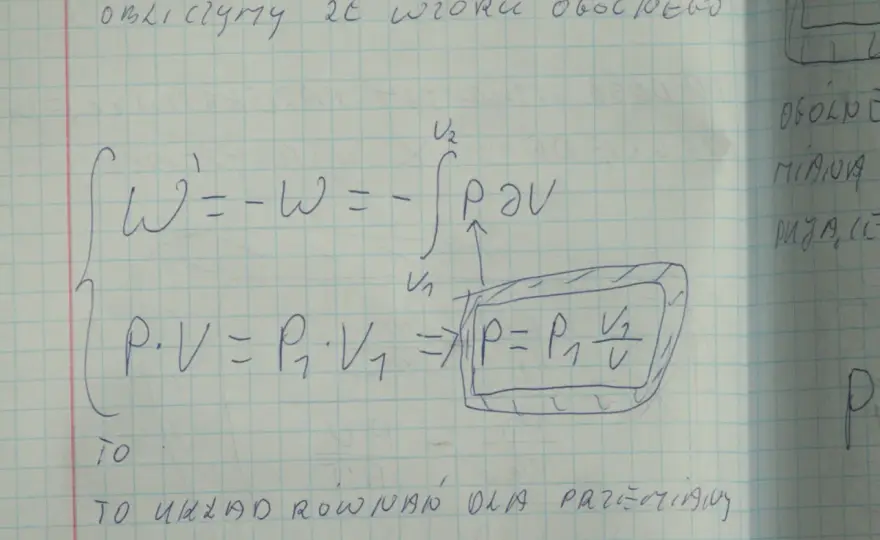 OBLICZYMY ZE WZORU OGÓLNEGO
W' = -W = - ∫ P ∂V
V2
V1
P·V = P1·V1 => P = P1 V1/V
TO
TO UKŁAD RÓWNAŃ DLA PRZEMIANY
OGÓLNE
MIANA
P